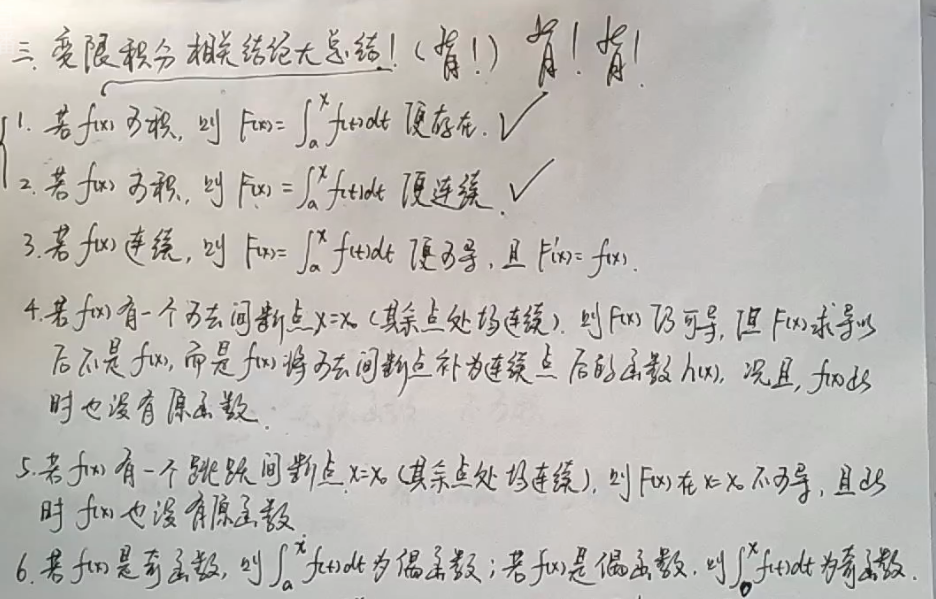 三. 变限积分相关结论大总结!(背!) 背! 背!
1. 若f(x)可积, 则 F(x)=∫ₐˣf(t)dt 便存在. ✓
2. 若f(x)可积, 则 F(x)=∫ₐˣf(t)dt 便连续. ✓
3. 若f(x)连续, 则 F(x)=∫ₐˣf(t)dt 便可导, 且 F'(x)=f(x).
4. 若f(x)有一个可去间断点x=x₀(其余点处均连续). 则F(x)仍可导, 但F(x)求导以
后不是f(x), 而是f(x)将可去间断点补为连续点后的函数h(x). 况且, f(x)此
时也没有原函数.
5. 若f(x)有一个跳跃间断点x=x₀(其余点处均连续), 则F(x)在x=x₀不可导, 且此
时f(x)也没有原函数
6. 若f(x)是奇函数, 则∫ₐˣf(t)dt为偶函数; 若f(x)是偶函数, 则∫₀ˣf(t)dt为奇函数.